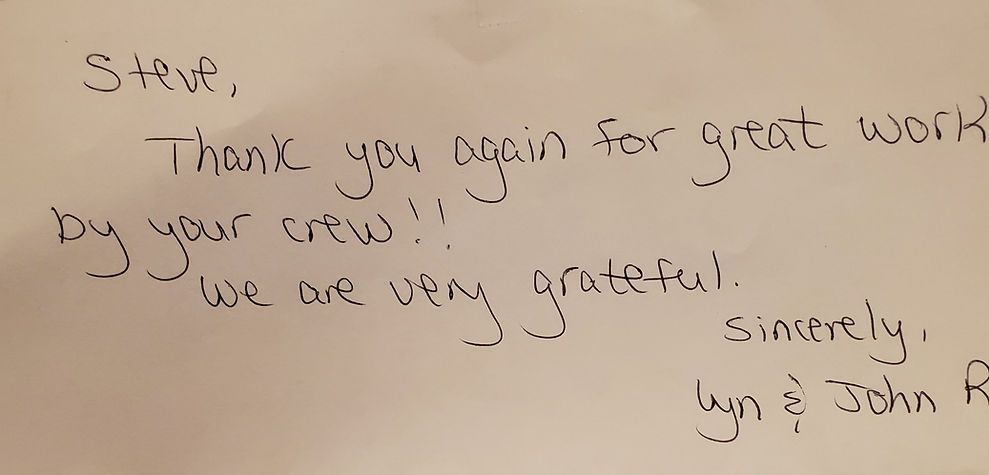 Steve,
Thank you again for great work
by your crew!!
We are very grateful.
Sincerely,
Lyn & John R